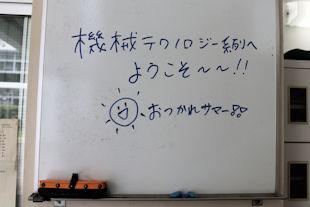 機械テクノロジー系列へ
ようこそ〜〜!!
おつかれサマー!!